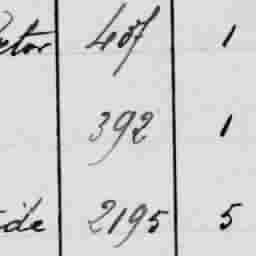 ctor 407 1
392 1
ide 2195 5